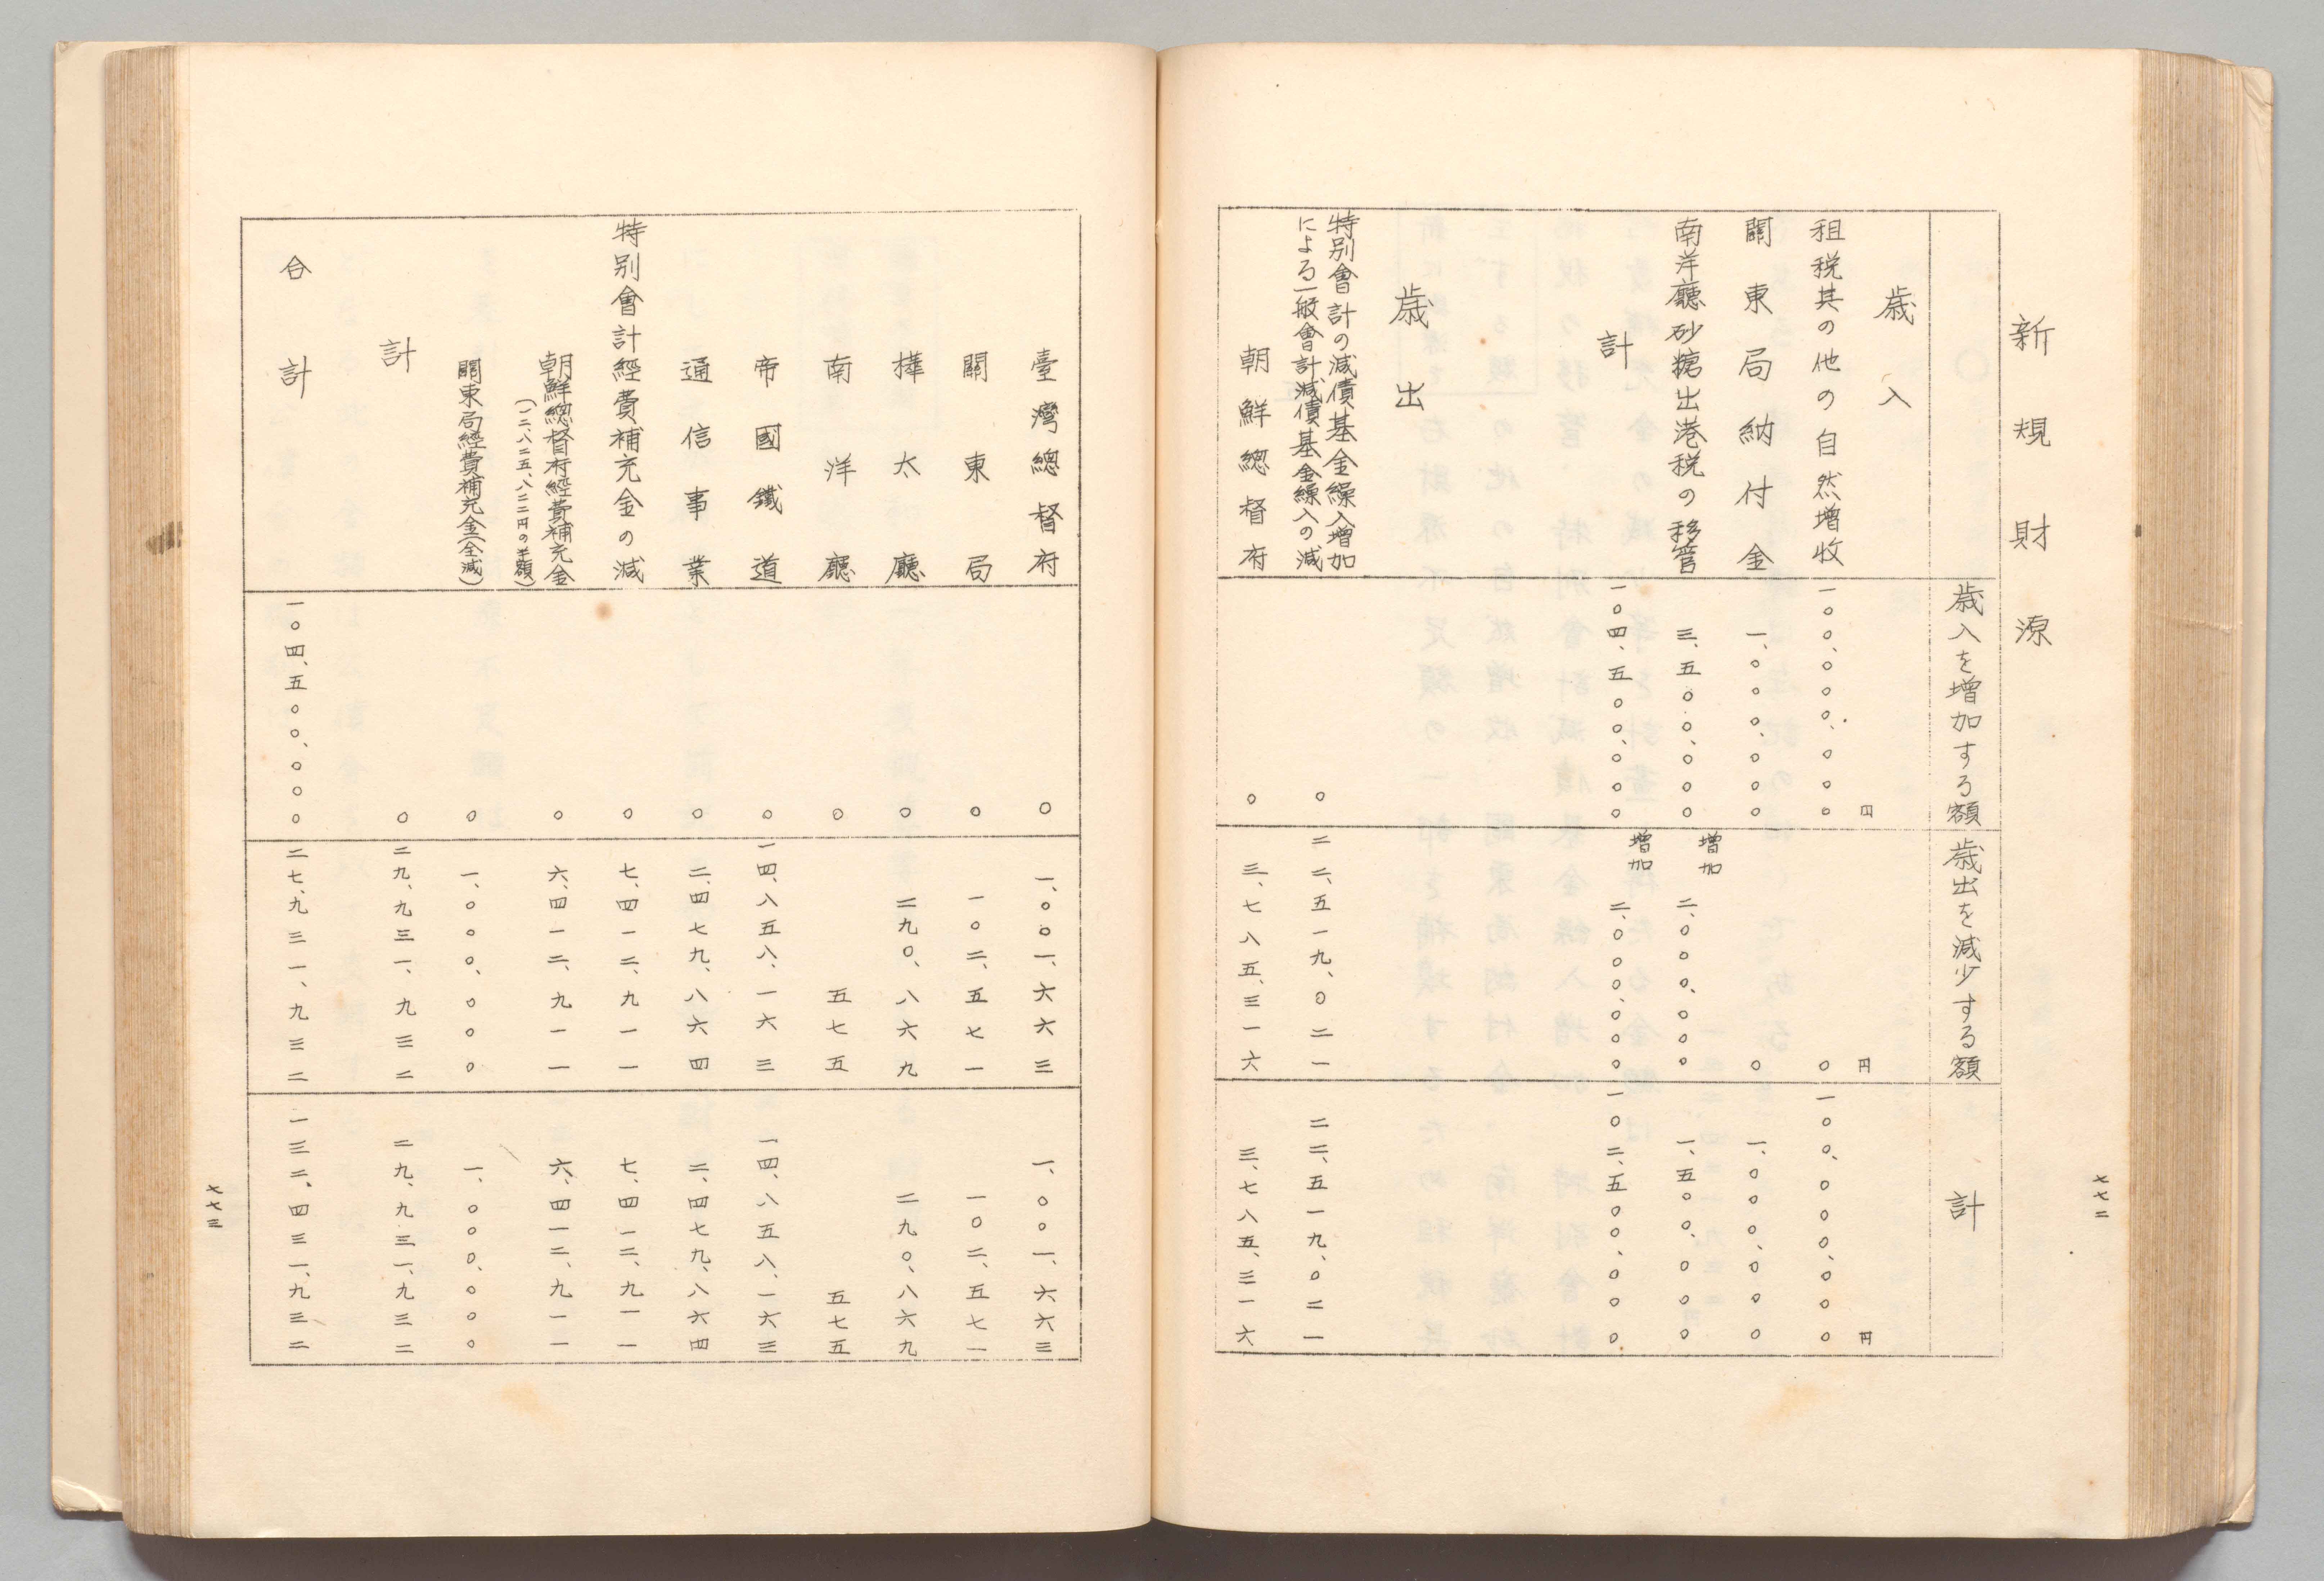 新規財源
歳入を増加する額
歳出を減少する額
計
歳入
円
円
円
租税其の他の自然増收
一〇〇、〇〇〇、〇〇〇
〇
一〇〇、〇〇〇、〇〇〇
關東局納付金
一、〇〇〇、〇〇〇
〇
一、〇〇〇、〇〇〇
南洋廳砂糖出港税の移管
三、五〇〇、〇〇〇
増加
二、〇〇〇、〇〇〇
一、五〇〇、〇〇〇
計
一〇四、五〇〇、〇〇〇
増加
二、〇〇〇、〇〇〇
一〇二、五〇〇、〇〇〇
歳出
特別會計の減債基金繰入増加
による一般會計減債基金繰入の減
〇
二二、五一九、〇二一
二二、五一九、〇二一
朝鮮總督府
〇
三、七八五、三一六
三、七八五、三一六
七七二
臺灣總督府
〇
一、〇〇一、六六三
一、〇〇一、六六三
關東局
〇
一〇二、五七一
一〇二、五七一
樺太廳
〇
二九〇、八六九
二九〇、八六九
南洋廳
〇
五七五
五七五
帝國鐵道
〇
一四、八五八、一六三
一四、八五八、一六三
通信事業
〇
二、四七九、八六四
二、四七九、八六四
特別會計經費補充金の減
〇
七、四一二、九一一
七、四一二、九一一
朝鮮總督府經費補充金
(一二、八二五、八二二円の半額)
〇
六、四一二、九一一
六、四一二、九一一
關東局經費補充金(全減)
〇
一、〇〇〇、〇〇〇
一、〇〇〇、〇〇〇
計
〇
二九、九三一、九三二
二九、九三一、九三二
合計
一〇四、五〇〇、〇〇〇
二七、九三一、九三二
一三二、四三一、九三二
七七三